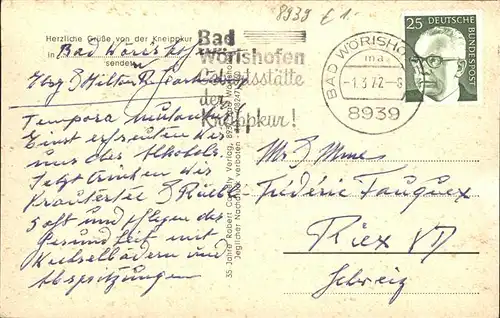 8939 € 1.-
Herzliche Grüße von der Kneippkur
in Bad Wörishofen
senden
Tempora mutantur
Einst erfreuten wir
uns des Alkohols.
Jetzt trinken wir
Kräutertee &
Saft und pflegen der
Gesundheit mit
Wechselbädern und
Abspritzungen
Bad
Wörishofen
Geburtsstätte
der
Kneippkur!
BAD WÖRISHOFEN
ma
-1.3.72-8
8939
25 DEUTSCHE BUNDESPOST
35 Jahre Robert Verlag, 8939 Bad Wörishofen
Jeglicher Nachdruck verboten
Mr & Mme
Frédéric Fauquex
Riex VD
Schweiz